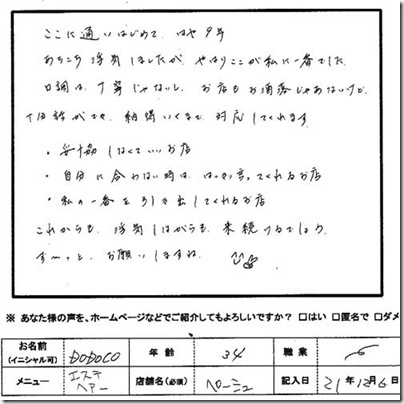 ここに通いはじめて、はや9年
あちこち浮気しましたが、やはりここが私に一番でした。
口調は、丁寧じゃないし、お店もお洒落じゃあないけど、
会話ができ、納得いくまで、対応してくれます。
・妥協しなくていいお店
・自分に合わない時は、はっきり言ってくれるお店
・私の一番を引き出してくれるお店
これからも、浮気しながらも、来続けるでしょう。
ず〜っと、お願いしますね。
※ あなた様の声を、ホームページなどでご紹介してもよろしいですか？ □はい □匿名で □ダメ
お名前 (イニシャル可) DODOCO 年齢 34 職業
メニュー エステ ヘアー 店舗名(必須) ペルーシュ 記入日 21年12月6日